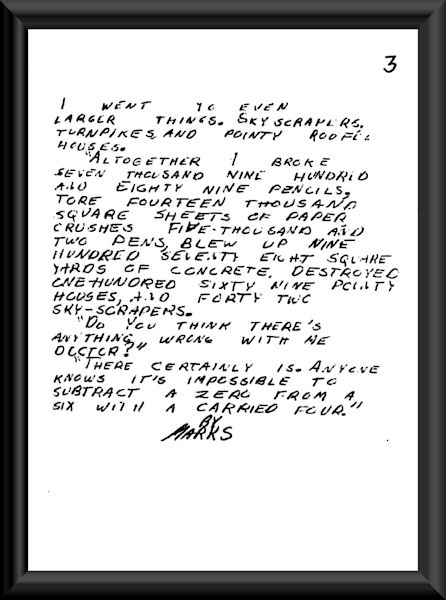 3
I WENT TO EVEN
LARGER THINGS. SKYSCRAPERS.
TURNPIKES, AND POINTY ROOFEL
HOUSES.
"ALTOGETHER I BROKE
SEVEN THOUSAND NINE HUNDRED
AND EIGHTY NINE PENCILS,
TORE FOURTEEN THOUSAND
SQUARE SHEETS OF PAPER
CRUSHES FIVE-THOUSAND AND
TWO PENS, BLEW UP NINE
HUNDRED SEVENTY EIGHT SQUARE
YARDS OF CONCRETE, DESTROYED
ONE-HUNDRED SIXTY NINE POINTY
HOUSES, AND FORTY TWO
SKY-SCRAPERS.
"DO YOU THINK THERE'S
ANYTHING WRONG WITH ME
DOCTOR?"
"THERE CERTAINLY IS. ANYONE
KNOWS IT'S IMPOSSIBLE TO
SUBTRACT A ZERO FROM A
SIX WITH A CARRIED FOUR."
BY
MARKS